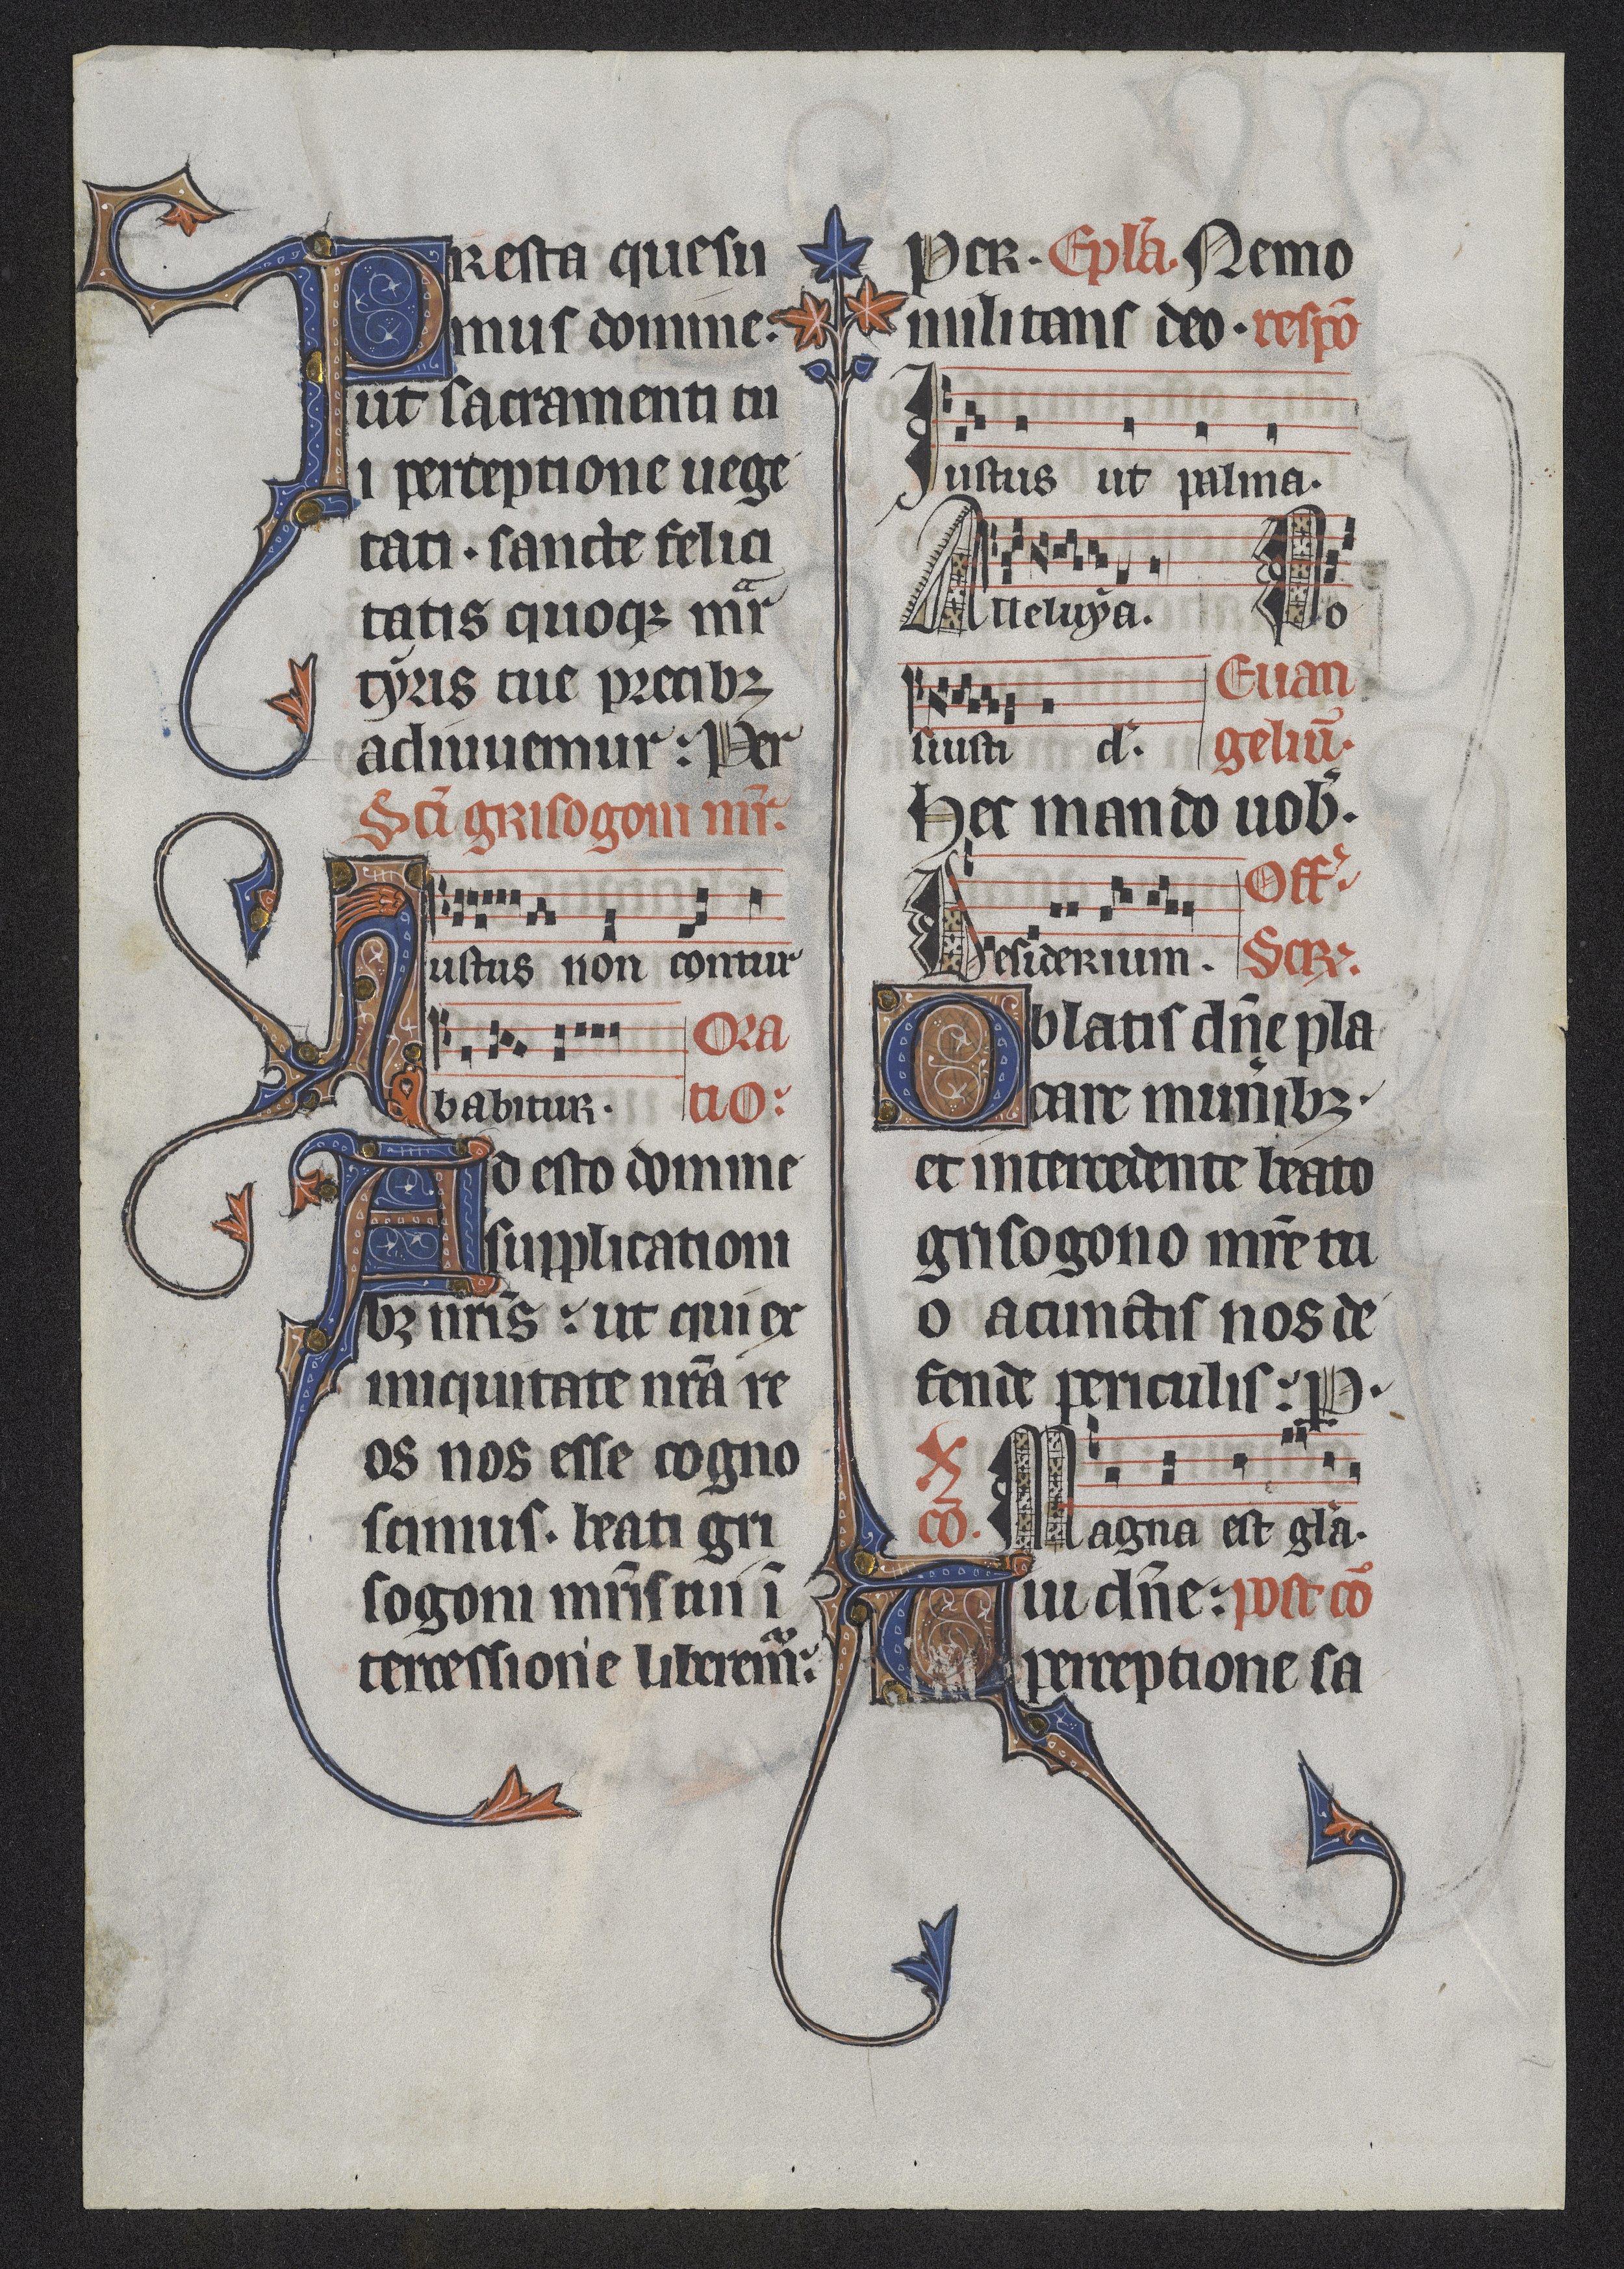 Presta quesu
mus domine:
ut sacramenti tu
i perceptione uege
tati · sancte felici
tatis quoqꝫ mr̃
tyris tue precibꝫ
adiuuemur : Per
Sc̃i grisogoni mr̃.
Iustus non contur
babitur. Ora
tio:
Ad esto domine
supplicationi
bꝫ nr̃is : ut qui ex
iniquitate nr̃a re
os nos esse cogno
scimus. beati gri
sogoni mr̃is tui ĩ
tercessione liberem̃:
Per. Epl̃a. Nemo
militans deo. respõ
Iustus ut palma.
Alleluya. Po
suisti d̃. Euan
geliũ.
Hec mando uob̃.
Desiderium. Off̃.
Secr̃.
Oblatis dñe pla
care muñibꝫ.
et intercedente beato
grisogono mr̃e tu
o acunctis nos de
fende periculis : P.
X
cõ. Magna est gl̃a.
Tui dñe : post cõ
perceptione sa